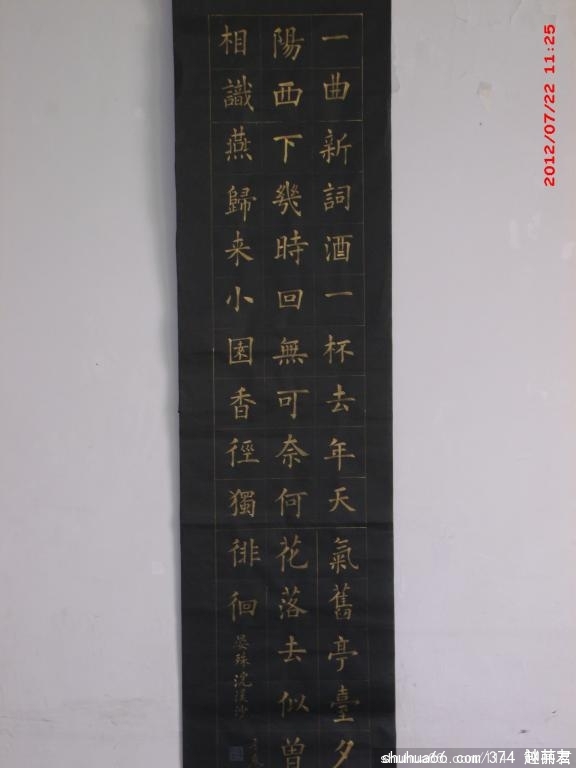 一曲新詞酒一杯去年天氣舊亭臺夕
陽西下幾時回無可奈何花落去似曾
相識燕歸来小園香徑獨徘徊
晏殊浣溪沙
2012/07/22 11:25
shuhua66.com/1374 越萌君